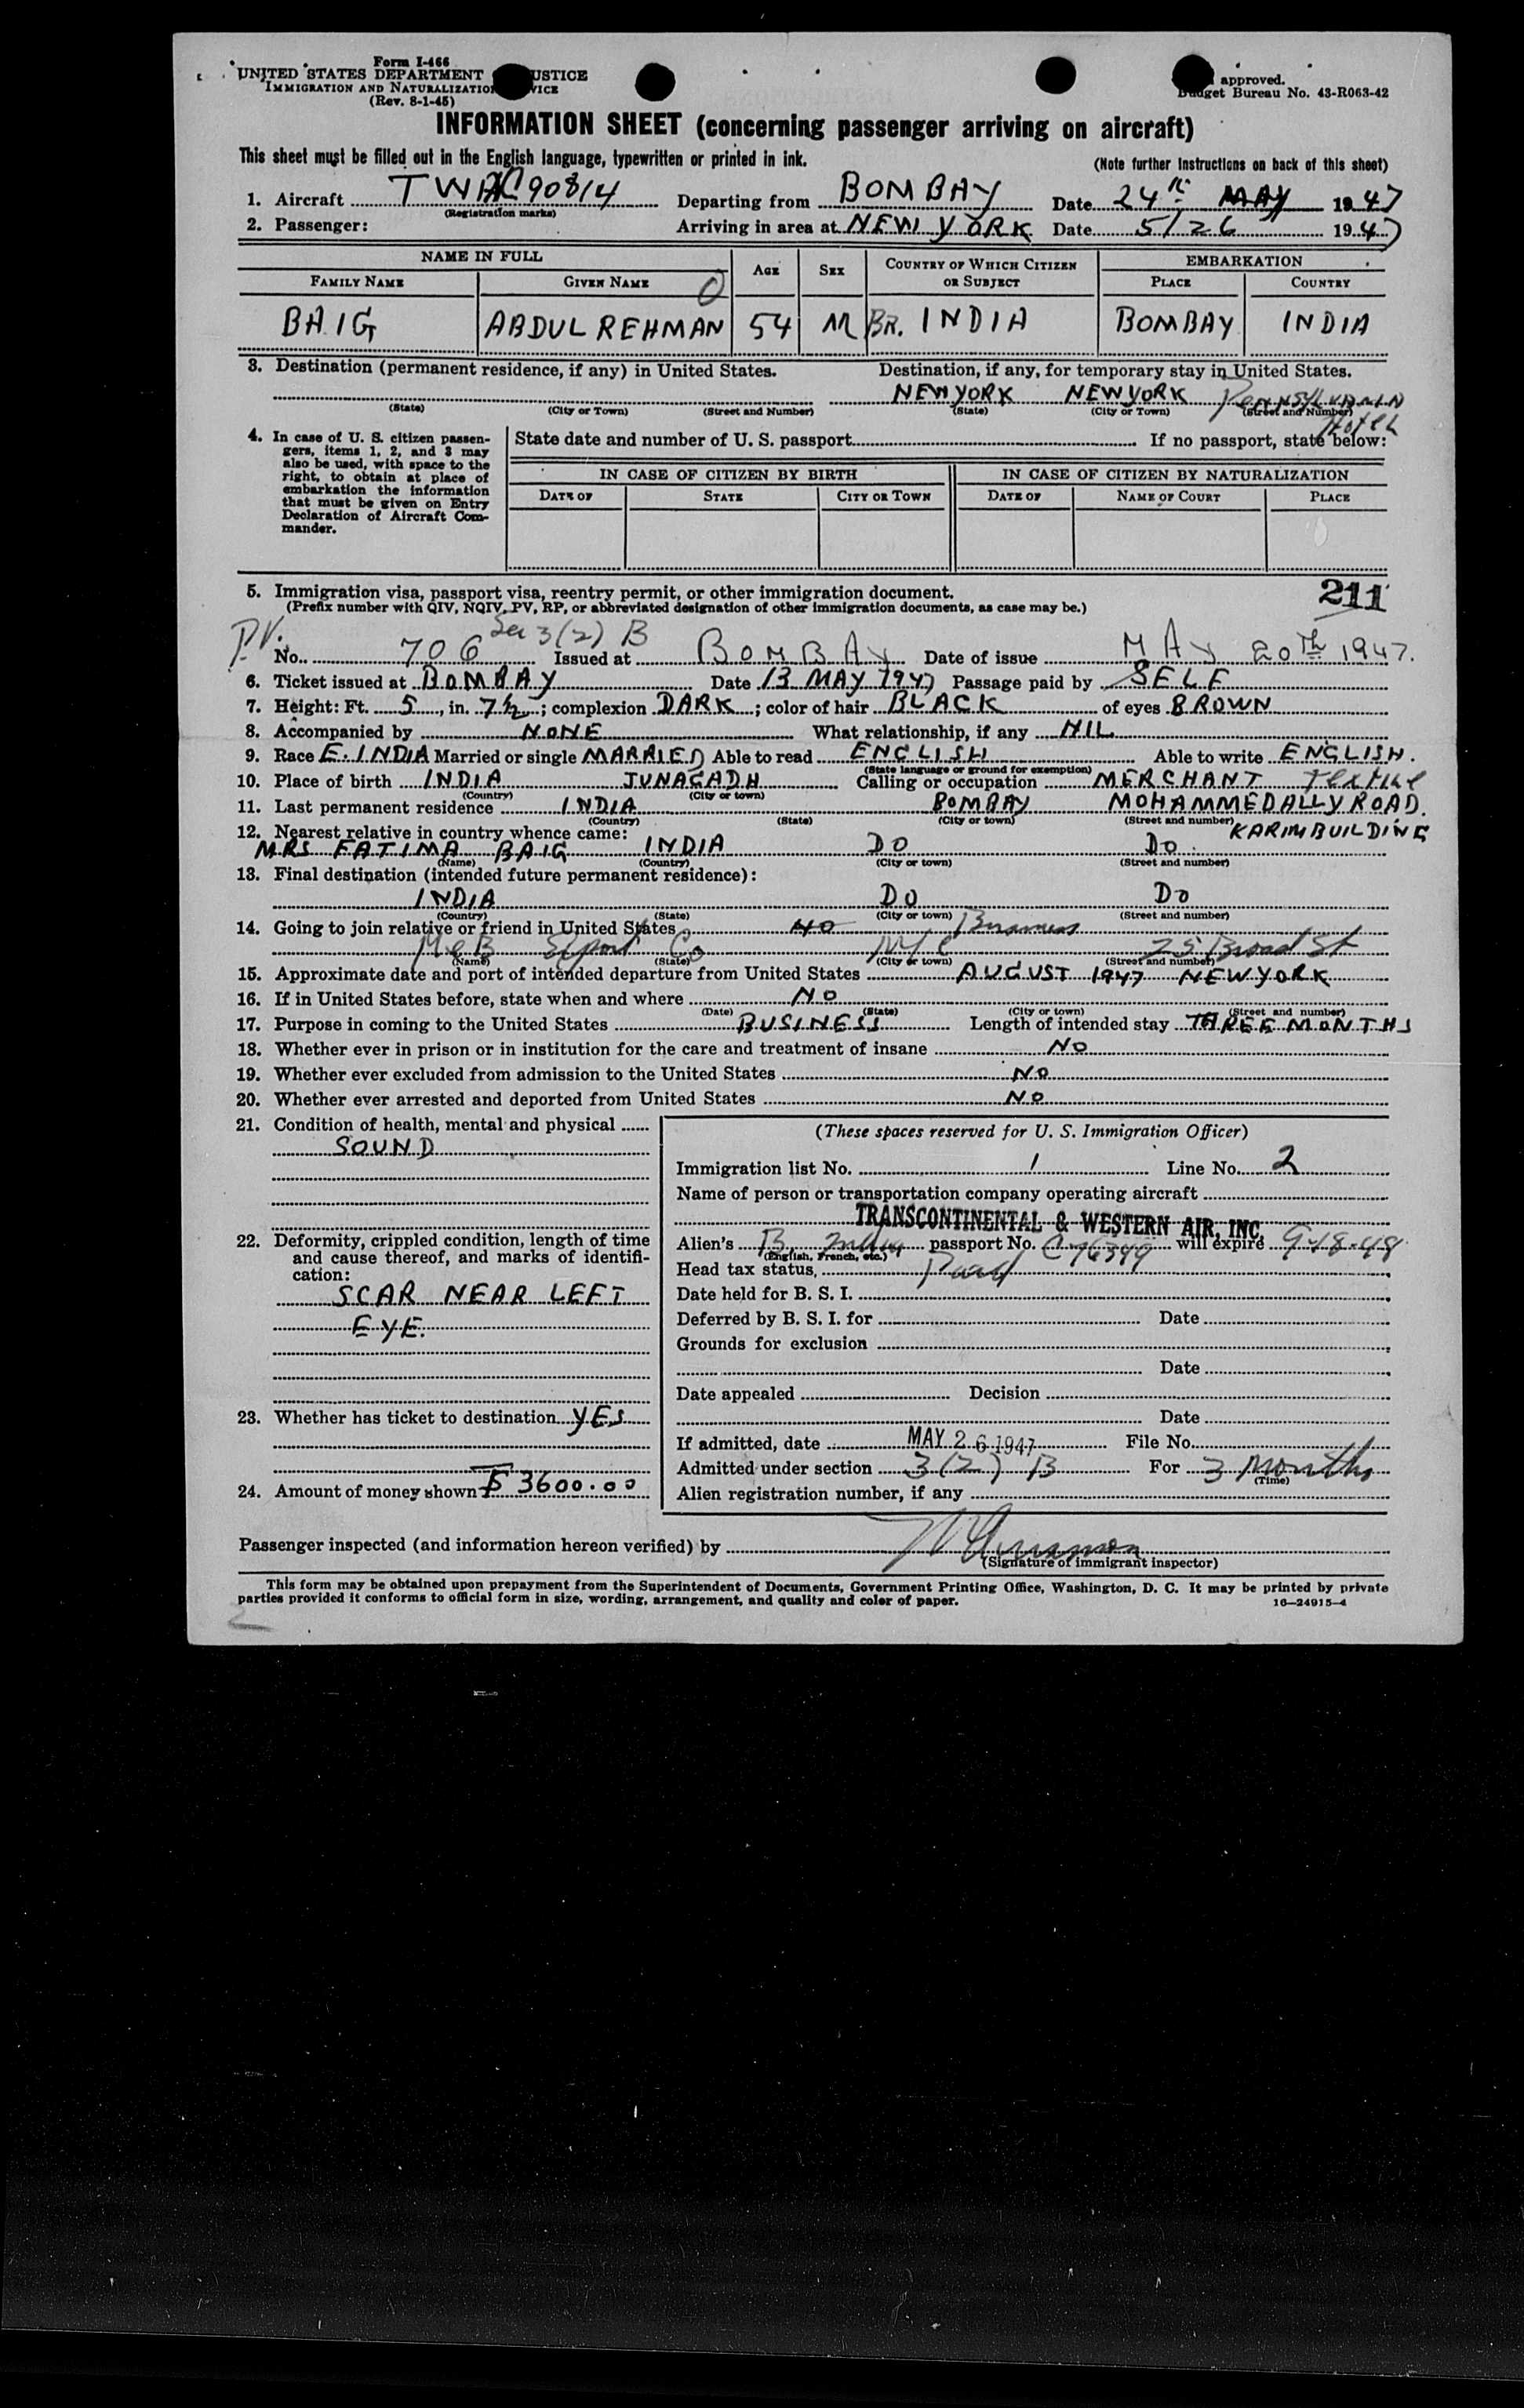 Form I-466
UNITED STATES DEPARTMENT USTICE
IMMIGRATION AND NATURALIZATION VICE
(Rev. 8-1-45)
approved.
Budget Bureau No. 43-R063-42
INFORMATION SHEET (concerning passenger arriving on aircraft)
This sheet must be filled out in the English language, typewritten or printed in ink.
(Note further instructions on back of this sheet)
1. Aircraft TWA 90814 Departing from BOMBAY Date 24th MAY 1947
(Registration marks)
2. Passenger: Arriving in area at NEW YORK Date 5/26 1947
NAME IN FULL AGE SEX COUNTRY OF WHICH CITIZEN OR SUBJECT EMBARKATION
FAMILY NAME GIVEN NAME PLACE COUNTRY
BAIG ABDUL REHMAN 54 M BR. INDIA BOMBAY INDIA
3. Destination (permanent residence, if any) in United States. Destination, if any, for temporary stay in United States.
NEWYORK NEWYORK PENNSYLVANIA
(State) (City or Town) (Street and Number) (State) (City or Town) (Street and Number)
Hotel
4. In case of U. S. citizen passengers, items 1, 2, and 3 may also be used, with space to the right, to obtain at place of embarkation the information that must be given on Entry Declaration of Aircraft Commander.
State date and number of U. S. passport If no passport, state below:
IN CASE OF CITIZEN BY BIRTH IN CASE OF CITIZEN BY NATURALIZATION
DATE OF STATE CITY OR TOWN DATE OF NAME OF COURT PLACE
211
5. Immigration visa, passport visa, reentry permit, or other immigration document.
(Prefix number with QIV, NQIV, PV, RP, or abbreviated designation of other immigration documents, as case may be.)
P.V. Sec 3(2) B
No. 706 Issued at BOMBAY Date of issue MAY 20th 1947.
6. Ticket issued at BOMBAY Date 13 MAY 1947 Passage paid by SELF
7. Height: Ft. 5, in. 7½; complexion DARK; color of hair BLACK of eyes BROWN
8. Accompanied by NONE What relationship, if any NIL
9. Race E. INDIA Married or single MARRIED Able to read ENGLISH Able to write ENGLISH.
(State language or ground for exemption)
10. Place of birth INDIA JUNAGADH Calling or occupation MERCHANT Textile
(Country) (City or town)
11. Last permanent residence INDIA BOMBAY MOHAMMEDALLY ROAD.
(Country) (State) (City or town) (Street and number)
KARIM BUILDING
12. Nearest relative in country whence came:
MRS FATIMA BAIG INDIA DO DO
(Name) (Country) (City or town) (Street and number)
13. Final destination (intended future permanent residence):
INDIA DO DO
(Country) (State) (City or town) (Street and number)
14. Going to join relative or friend in United States NO Business
M&B Export Co NYC 25 Broad St
(Name) (State) (City or town) (Street and number)
15. Approximate date and port of intended departure from United States AUGUST 1947 NEWYORK
16. If in United States before, state when and where NO
(Date) (State) (City or town) (Street and number)
17. Purpose in coming to the United States BUSINESS Length of intended stay THREE MONTHS
18. Whether ever in prison or in institution for the care and treatment of insane NO
19. Whether ever excluded from admission to the United States NO
20. Whether ever arrested and deported from United States NO
21. Condition of health, mental and physical
SOUND
22. Deformity, crippled condition, length of time and cause thereof, and marks of identification:
SCAR NEAR LEFT
EYE.
23. Whether has ticket to destination YES
24. Amount of money shown $ 3600.00
(These spaces reserved for U. S. Immigration Officer)
Immigration list No. 1 Line No. 2
Name of person or transportation company operating aircraft
TRANSCONTINENTAL & WESTERN AIR, INC.
Alien's B. India passport No. C 76399 will expire 9-18-48
(English, French, etc.)
Head tax status, Paid
Date held for B. S. I.
Deferred by B. S. I. for Date
Grounds for exclusion
Date
Date appealed Decision
Date
If admitted, date MAY 26 1947 File No.
Admitted under section 3(2) B For 3 Months
(Time)
Alien registration number, if any
Passenger inspected (and information hereon verified) by
(Signature of immigrant inspector)
This form may be obtained upon prepayment from the Superintendent of Documents, Government Printing Office, Washington, D. C. It may be printed by private
parties provided it conforms to official form in size, wording, arrangement, and quality and color of paper. 16—24915-4
2